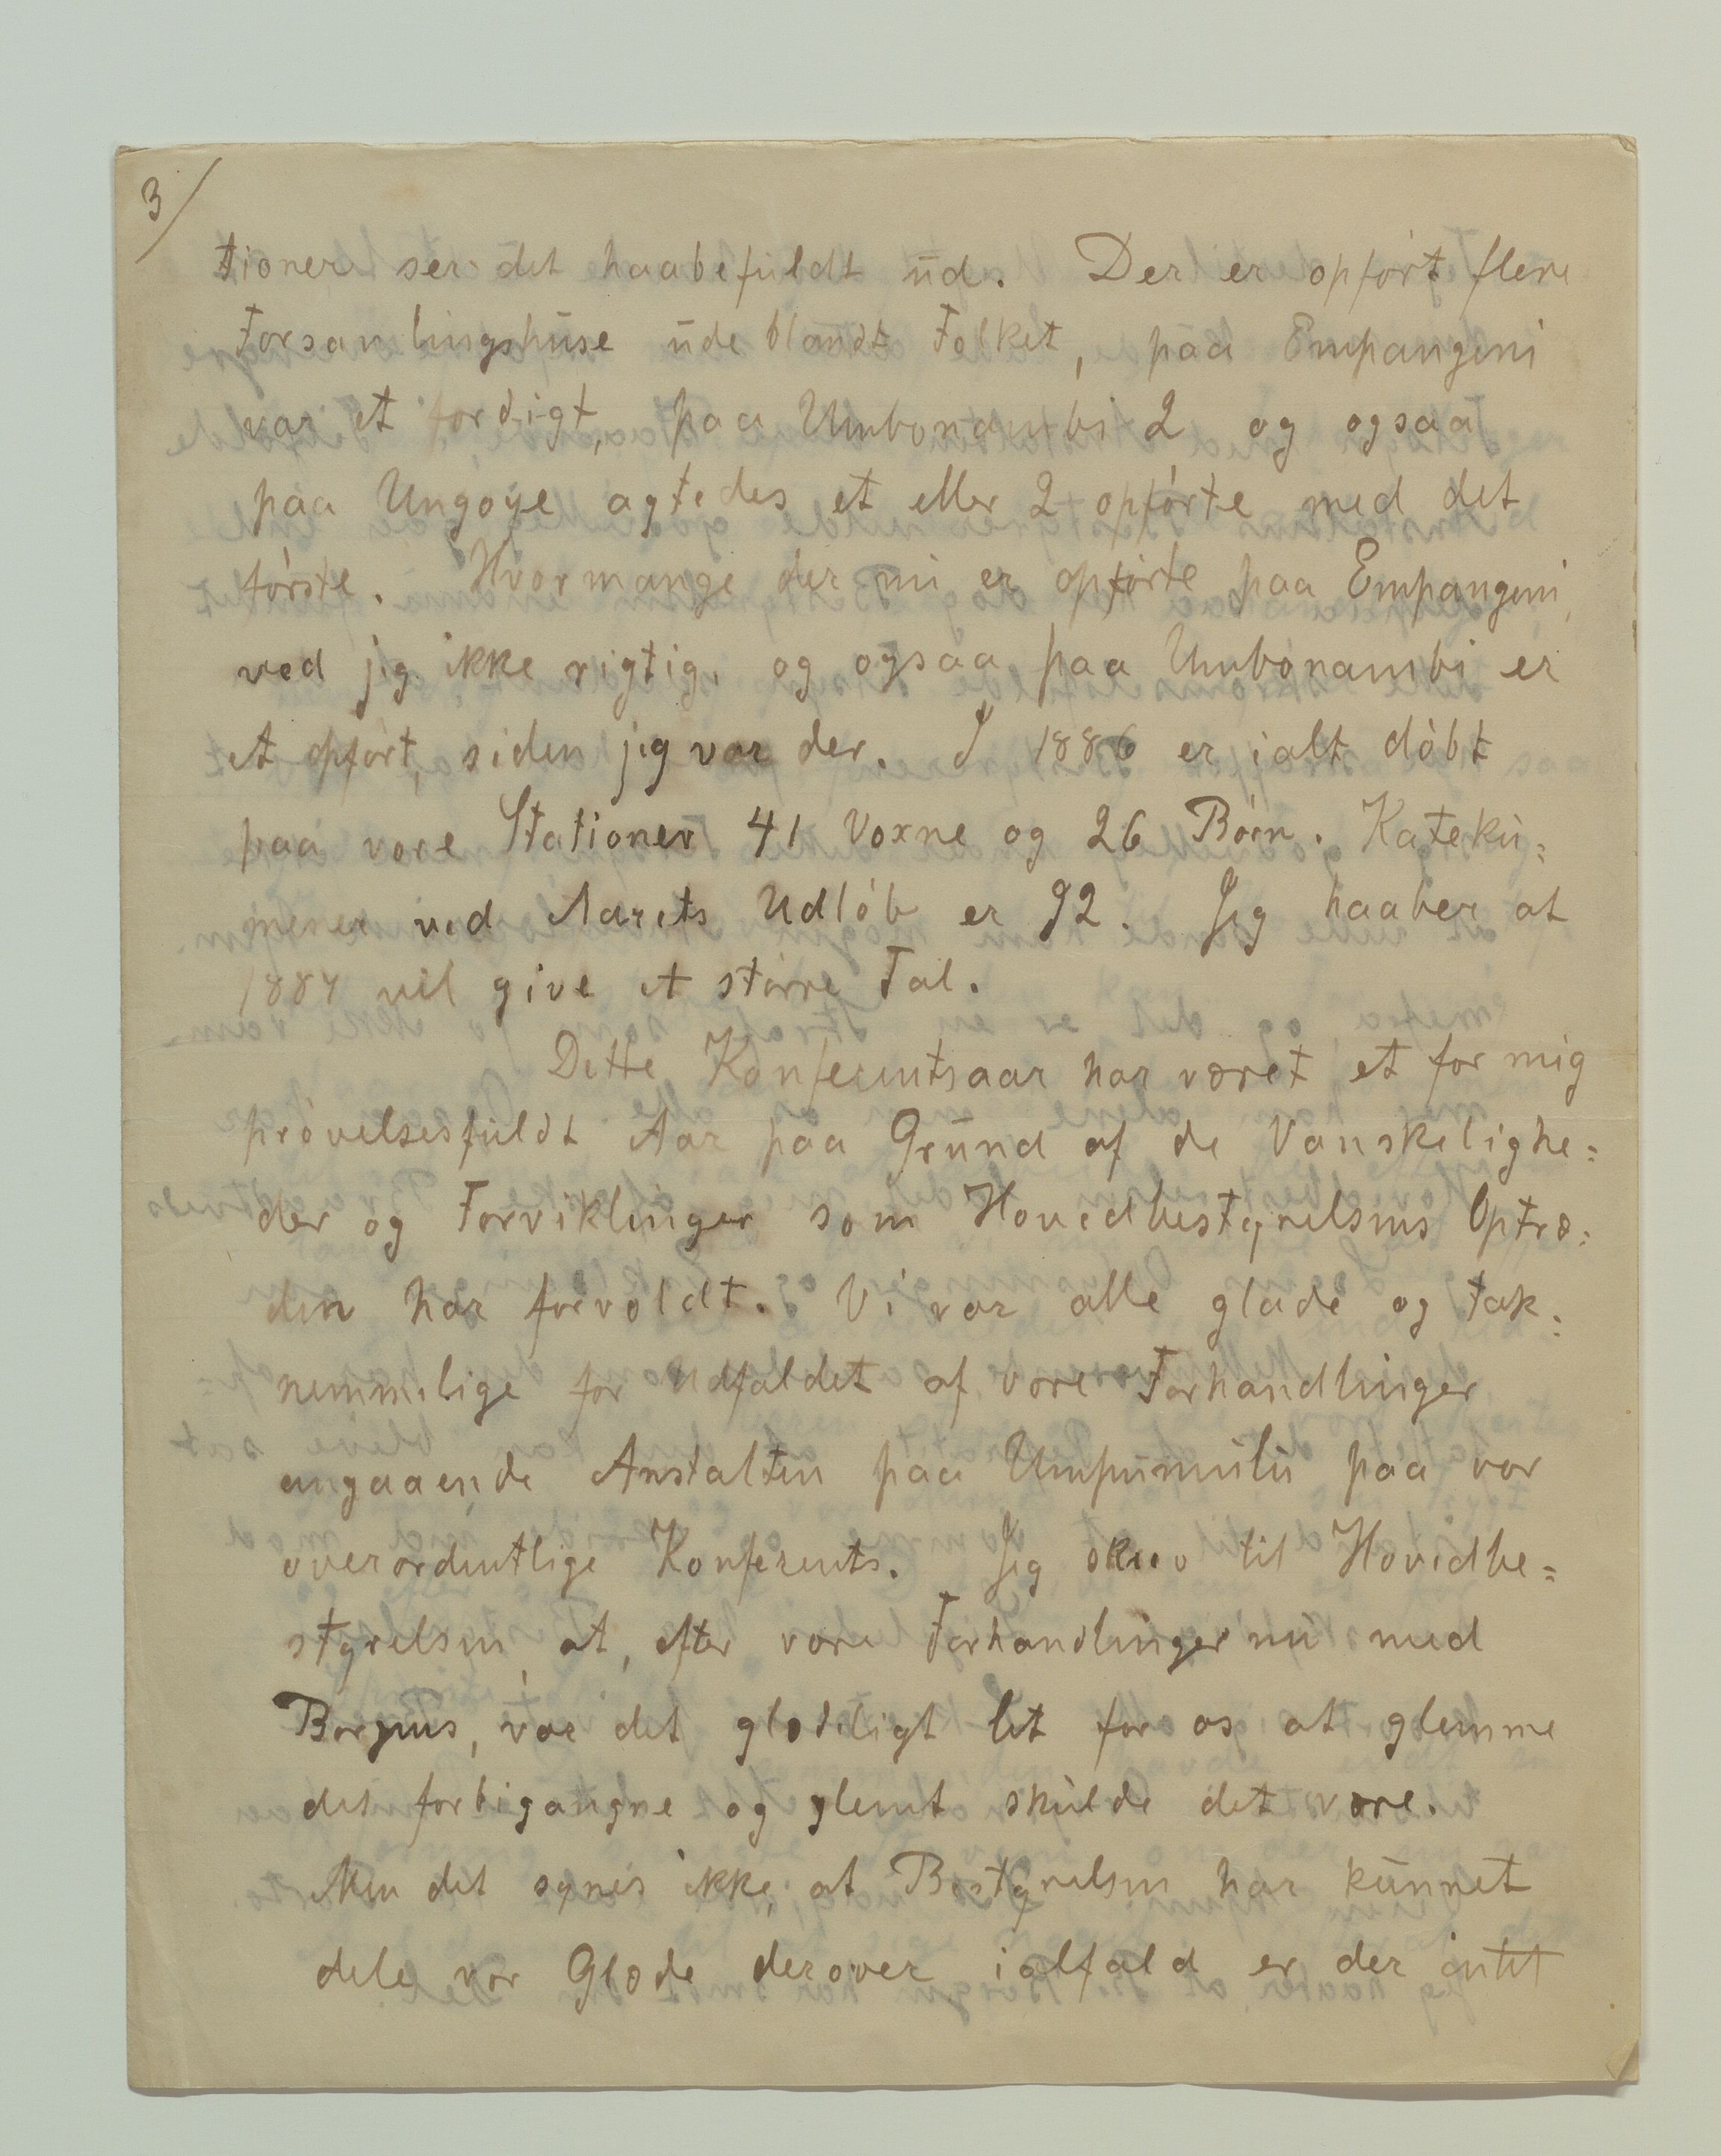 3/
tioner ser det haabefuldt ud. Der er opført flere
Forsamlingshuse ude blandt Folket, paa Empangeni
var et færdigt, paa Umbonambi 2 og ogsaa
paa Ungoye agtedes et eller 2 opførte med det
første. Hvormange der nu er opførte paa Empangeni,
ved jeg ikke rigtig, og ogsaa paa Umbonambi er
et opført, siden jeg var der. I 1886 er ialt døbt
paa vore Stationer 41 Voxne og 26 Børn. Kateku=
mener ved Aarets Udløb er 92. Jeg haaber at
1887 vil give et større Tal.
Dette Konferentsaar har været et for mig
prøvelsesfuldt Aar paa Grund af de Vanskelighe=
der og Forviklinger som Hovedbestyrelsens Optræ=
den har forvoldt. Vi var alle glade og tak=
nemmelige for Udfaldet af vore Forhandlinger
angaaende Anstalten paa Umpumulu paa vor
overordentlige Konferents. Jeg skrev til Hovedbe=
styrelsen, at, efter vore Forhandlinger nu med
Borgens, var det glædeligt let for os at glemme
det forbigangne og glemt skulde det være.
Men det synes ikke, at Bestyrelsen har kunnet
dele vor Glæde derover ialfald er der intet